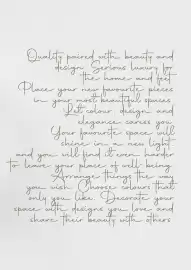 Quality paired with beauty and
design. Serious luxury to
the home and feet
Place your new favourite pieces
in your most beautiful spaces.
Let colour design and
elegance caress you.
Your favourite space will
shine in a new light
and you will find it even harder
to leave your place of well-being.
Arrange things the way
you wish. Choose colours that
only you like. Decorate your
space with designs you love and
share their beauty with others.